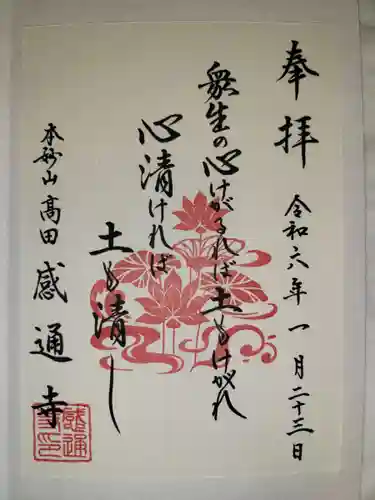 奉拝
令和六年一月二十三日
衆生の心けがるれば土もけがれ
心清ければ
土も清し
本妙山高田感通寺
感通寺印